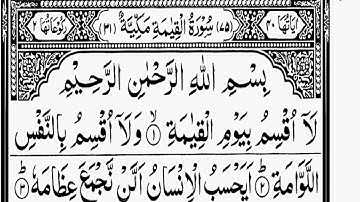 اٰیَاتُهَا ٤٠ (٧٥) سُوْرَةُ الْقِيٰمَةِ مَكِّيَّةٌ (٣١) رُكُوْعَاتُهَا ٢
بِسْمِ اللّٰهِ الرَّحْمٰنِ الرَّحِيْمِ
لَآ اُقْسِمُ بِيَوْمِ الْقِيٰمَةِ ۙ ١ وَلَآ اُقْسِمُ بِالنَّفْسِ
اللَّوَّامَةِ ٢ اَيَحْسَبُ الْاِنْسَانُ اَلَّنْ نَّجْمَعَ عِظَامَهٗ ٣